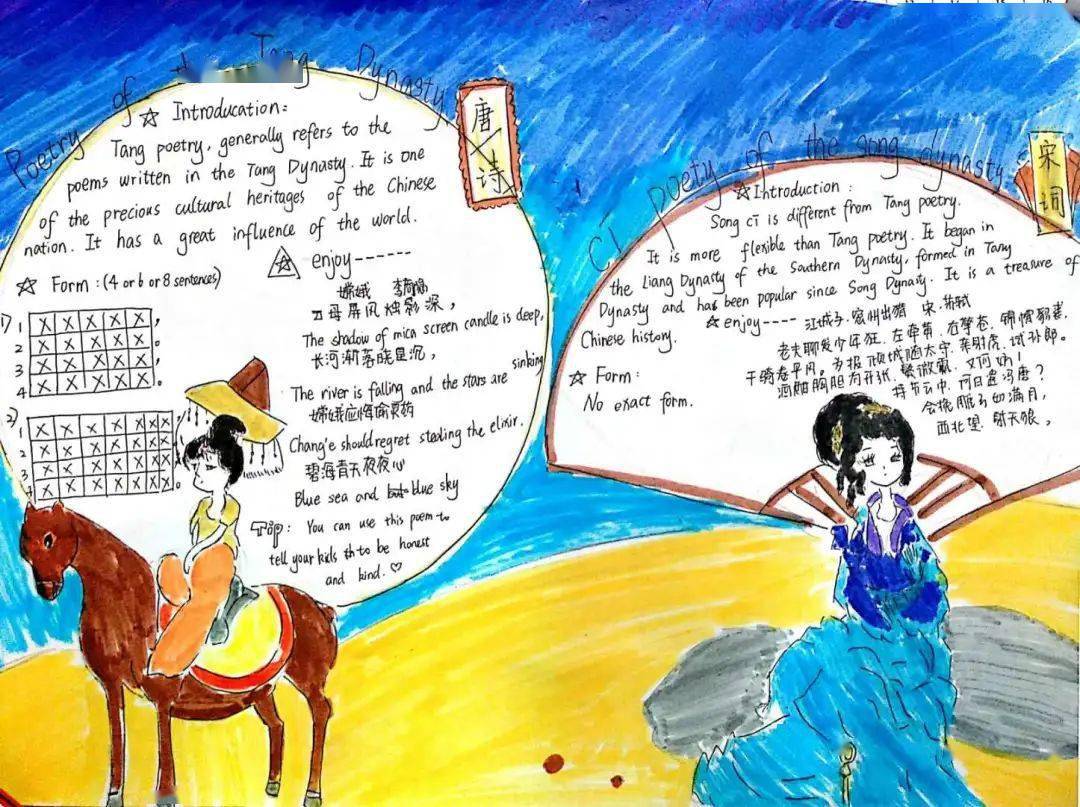 Poetry of the Tang Dynasty
唐诗
☆ Introducation:
Tang poetry, generally refers to the
poems written in the Tang Dynasty. It is one
of the precious cultural heritages of the Chinese
nation. It has a great influence of the world.
☆ Form: (4 or b or 8 sentences)
1)
1 X X X X X ,
2 X X X X X 。
3 X X X X X ,
4 X X X X X 。
1
2
3
4
enjoy------
嫦娥 李商隐
云母屏风烛影深，
The shadow of mica screen candle is deep,
长河渐落晓星沉，
The river is falling and the stars are sinking
嫦娥应悔偷灵药
Chang'e should regret stealing the elixir.
碧海青天夜夜心
Blue sea and blue sky
Tip: You can use this poem to
tell your kids to be honest
and kind. ♡
ci poety of the song dynasty
宋词
☆Introduction:
Song ci is different from Tang poetry.
It is more flexible than Tang poetry. It began in
the Liang Dynasty of the Southern Dynasty, formed in Tang
Dynasty and has been popular since Song Dynasty. It is a treasure of
Chinese history.
☆enjoy---- 江城子·密州出猎 宋·苏轼
老夫聊发少年狂，左牵黄，右擎苍，锦帽貂裘，
千骑卷平冈。为报倾城随太守，亲射虎，
酒酣胸胆尚开张，鬓微霜，又何妨！
持节云中，何日遣冯唐？
会挽雕弓如满月，
西北望，射天狼，
☆ Form:
No exact form.